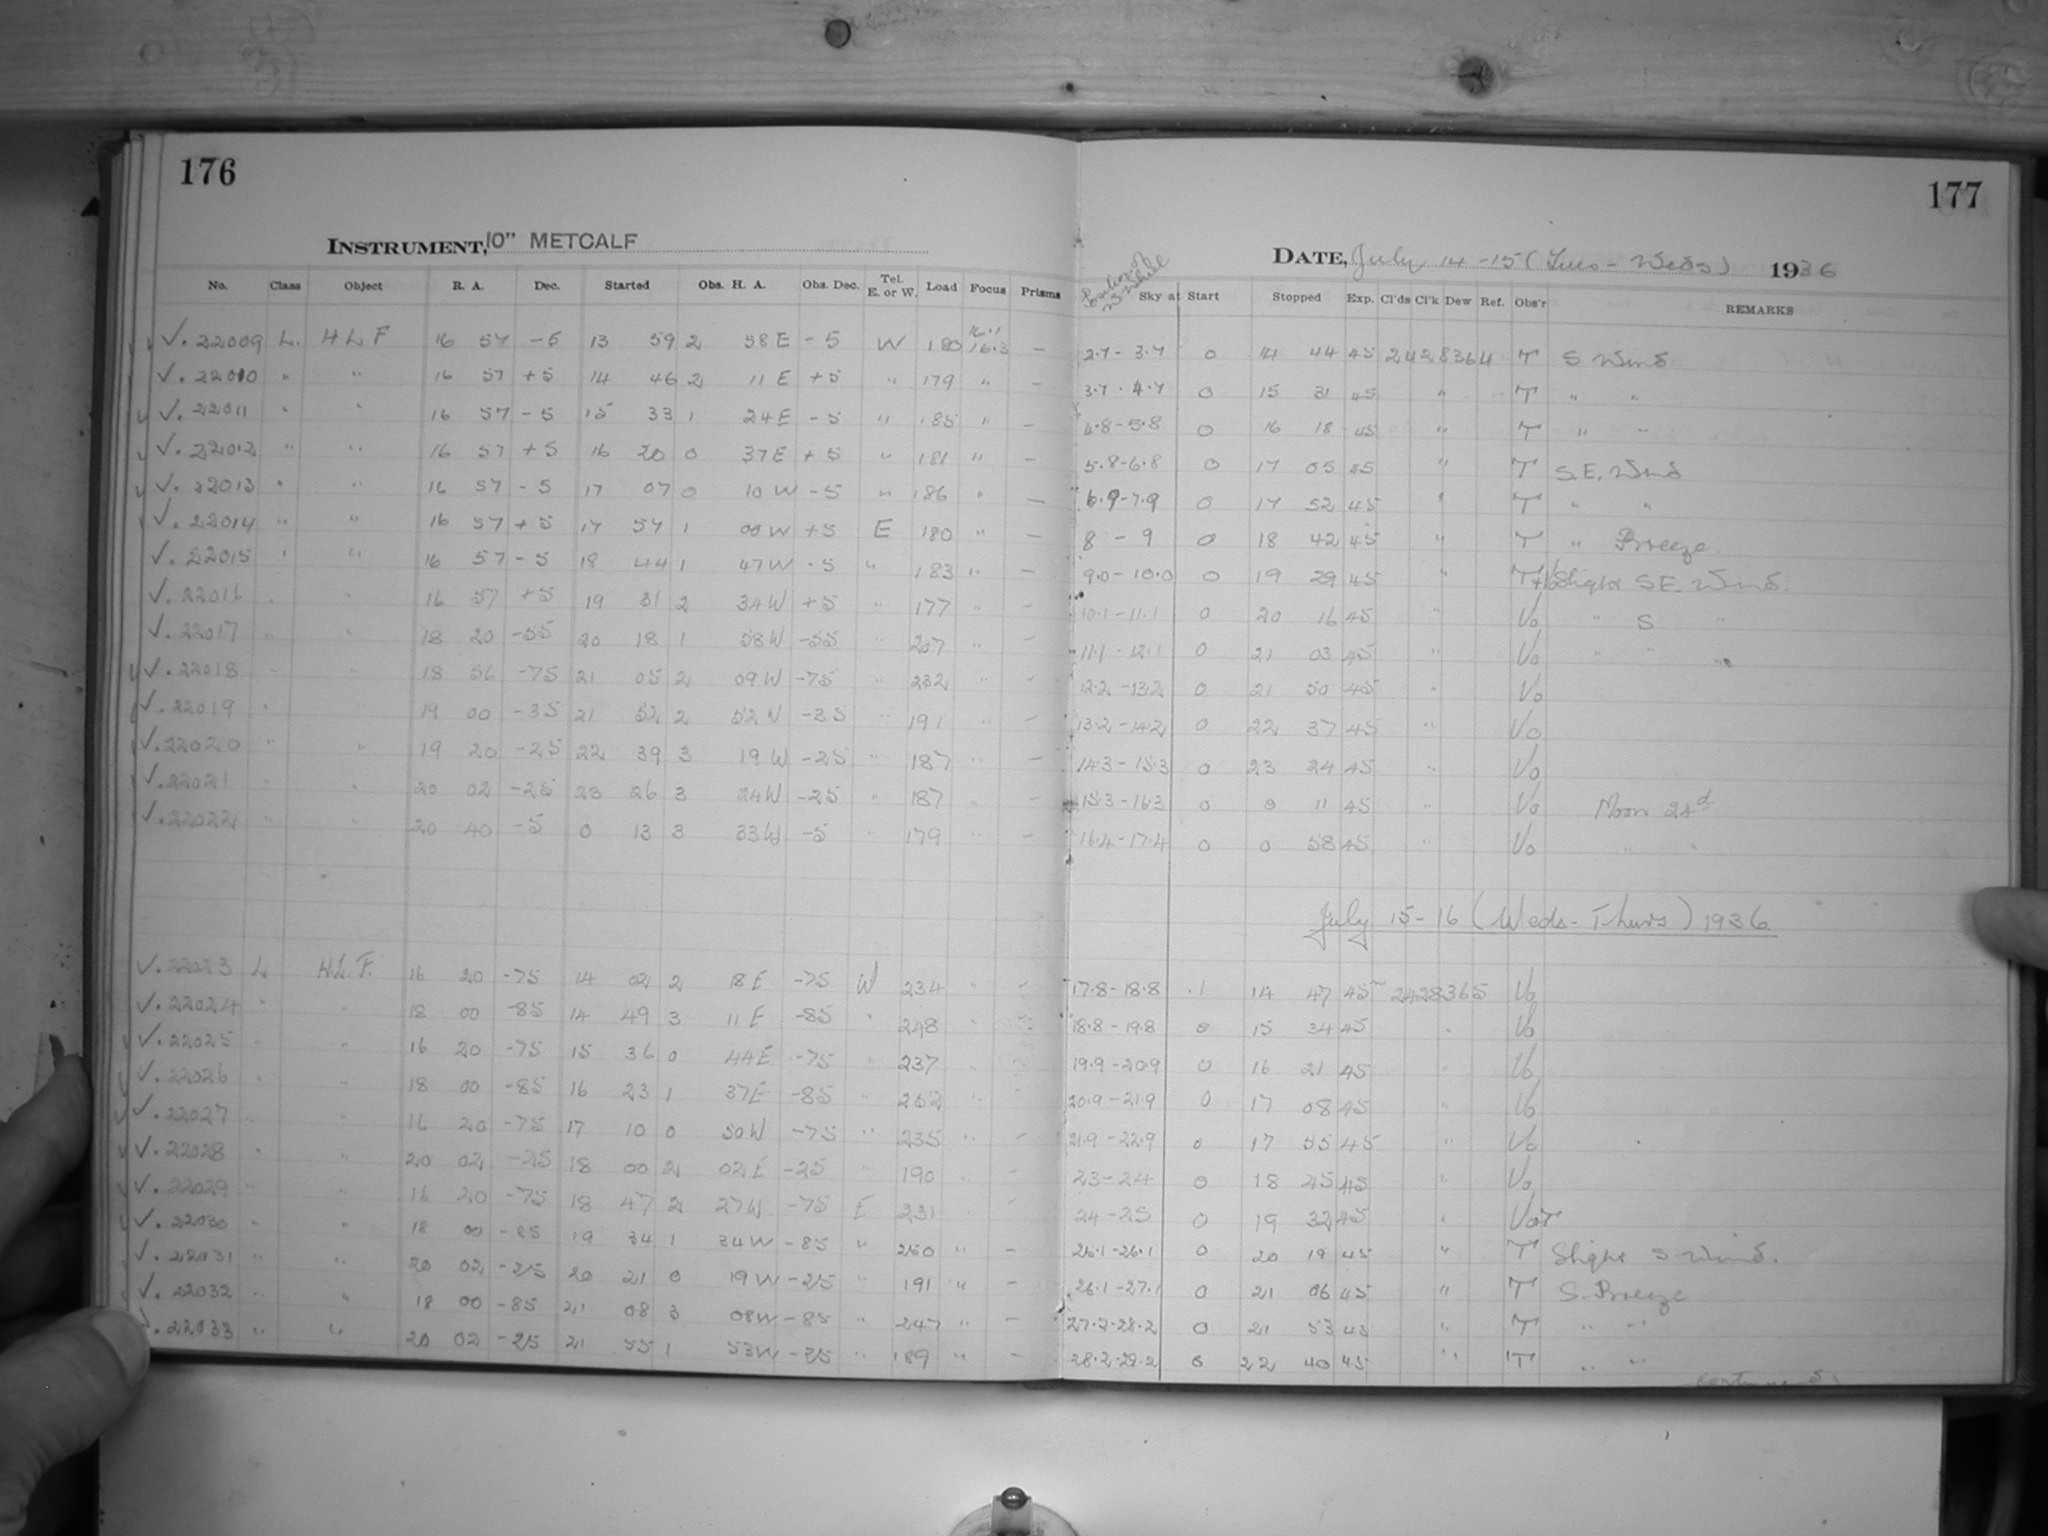 176
177
INSTRUMENT, 10" METCALF
DATE, July 14-15 (Tues - Weds) 1936
No. Class Object R. A. Dec. Started Obs. H. A. Obs. Dec. Tel. E. or W. Load Focus Prisms Sky at Start Stopped Exp. Cl'ds Cl'k Dew Ref. Obs'r REMARKS
√. 22009 L. H L F 16 57 -5 13 59 2 58 E -5 W 180 16.1 16.3 — 2.7 - 3.7 0 14 44 45 2428364 T S Wind
√. 22010 " " 16 57 +5 14 46 2 11 E +5 " 179 " — 3.7 - 4.7 0 15 31 45 " T " "
√. 22011 " " 16 57 -5 15 33 1 24 E -5 " 185 " — 4.8-5.8 0 16 18 45 " T " "
√. 22012 " " 16 57 +5 16 20 0 37 E +5 " 181 " — 5.8-6.8 0 17 05 45 " T S.E. Wind
√. 22013 " " 16 57 -5 17 07 0 10 W -5 " 186 " — 6.9-7.9 0 17 52 45 " T " "
√. 22014 " " 16 57 +5 17 57 1 00 W +5 E 180 " — 8 - 9 0 18 42 45 " T " Breeze.
√. 22015 " " 16 57 -5 18 44 1 47 W -5 " 183 " — 9.0-10.0 0 19 29 45 " T+Vo Slight SE Wind.
√. 22016 " " 16 57 +5 19 31 2 34 W +5 " 177 " — 10.1-11.1 0 20 16 45 " Vo " S "
√. 22017 " " 18 20 -55 20 18 1 58 W -55 " 207 " — 11.1-12.1 0 21 03 45 " Vo " " "
√. 22018 " " 18 56 -75 21 05 2 09 W -75 " 232 " — 12.2-13.2 0 21 50 45 " Vo
√. 22019 " " 19 00 -35 21 52 2 52 W -35 " 191 " — 13.2-14.2 0 22 37 45 " Vo
√. 22020 " " 19 20 -25 22 39 3 19 W -25 " 187 " — 14.3-15.3 0 23 24 45 " Vo
√. 22021 " " 20 02 -25 23 26 3 24 W -25 " 187 " — 15.3-16.3 0 0 11 45 " Vo Moon 24d
√. 22022 " " 20 40 -5 0 13 3 33 W -5 " 179 " — 16.4-17.4 0 0 58 45 " Vo " "
July 15-16 (Weds - Thurs) 1936
√. 22023 L H.L.F. 16 20 -75 14 02 2 18 E -75 W 234 " — 17.8-18.8 .1 14 47 45 2428365 Vo
√. 22024 " " 18 00 -85 14 49 3 11 E -85 " 248 " — 18.8-19.8 0 15 34 45 " Vo
√. 22025 " " 16 20 -75 15 36 0 44 E -75 " 237 " — 19.9-20.9 0 16 21 45 " Vo
√. 22026 " " 18 00 -85 16 23 1 37 E -85 " 252 " — 20.9-21.9 0 17 08 45 " Vo
√. 22027 " " 16 20 -75 17 10 0 50 W -75 " 235 " — 21.9-22.9 0 17 55 45 " Vo
√. 22028 " " 20 02 -25 18 00 2 02 E -25 " 190 " — 23-24 0 18 45 45 " Vo
√. 22029 " " 16 20 -75 18 47 2 27 W -75 E 231 " — 24-25 0 19 32 45 " Vo+T
√. 22030 " " 18 00 -85 19 34 1 34 W -85 " 250 " — 25.1-26.1 0 20 19 45 " T Slight S Wind.
√. 22031 " " 20 02 -25 20 21 0 19 W -25 " 191 " — 26.1-27.1 0 21 06 45 " T S. Breeze
√. 22032 " " 18 00 -85 21 08 3 08 W -85 " 247 " — 27.2-28.2 0 21 53 45 " T " "
√. 22033 " " 20 02 -25 21 55 1 53 W -25 " 189 " — 28.2-29.2 0 22 40 45 " T " "